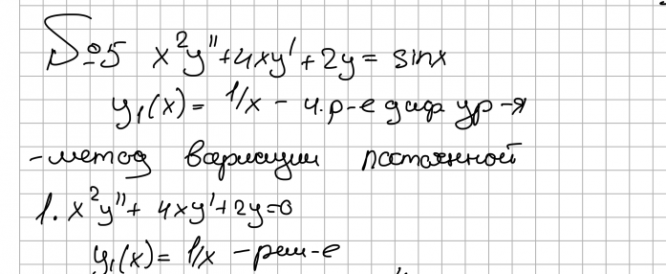 №5 x²y'' + 4xy' + 2y = sinx
y₁(x) = 1/x – ч.р-е диф ур-я
- метод вариации постоянной
1. x²y'' + 4xy' + 2y = 0
y₁(x) = 1/x – реш-е